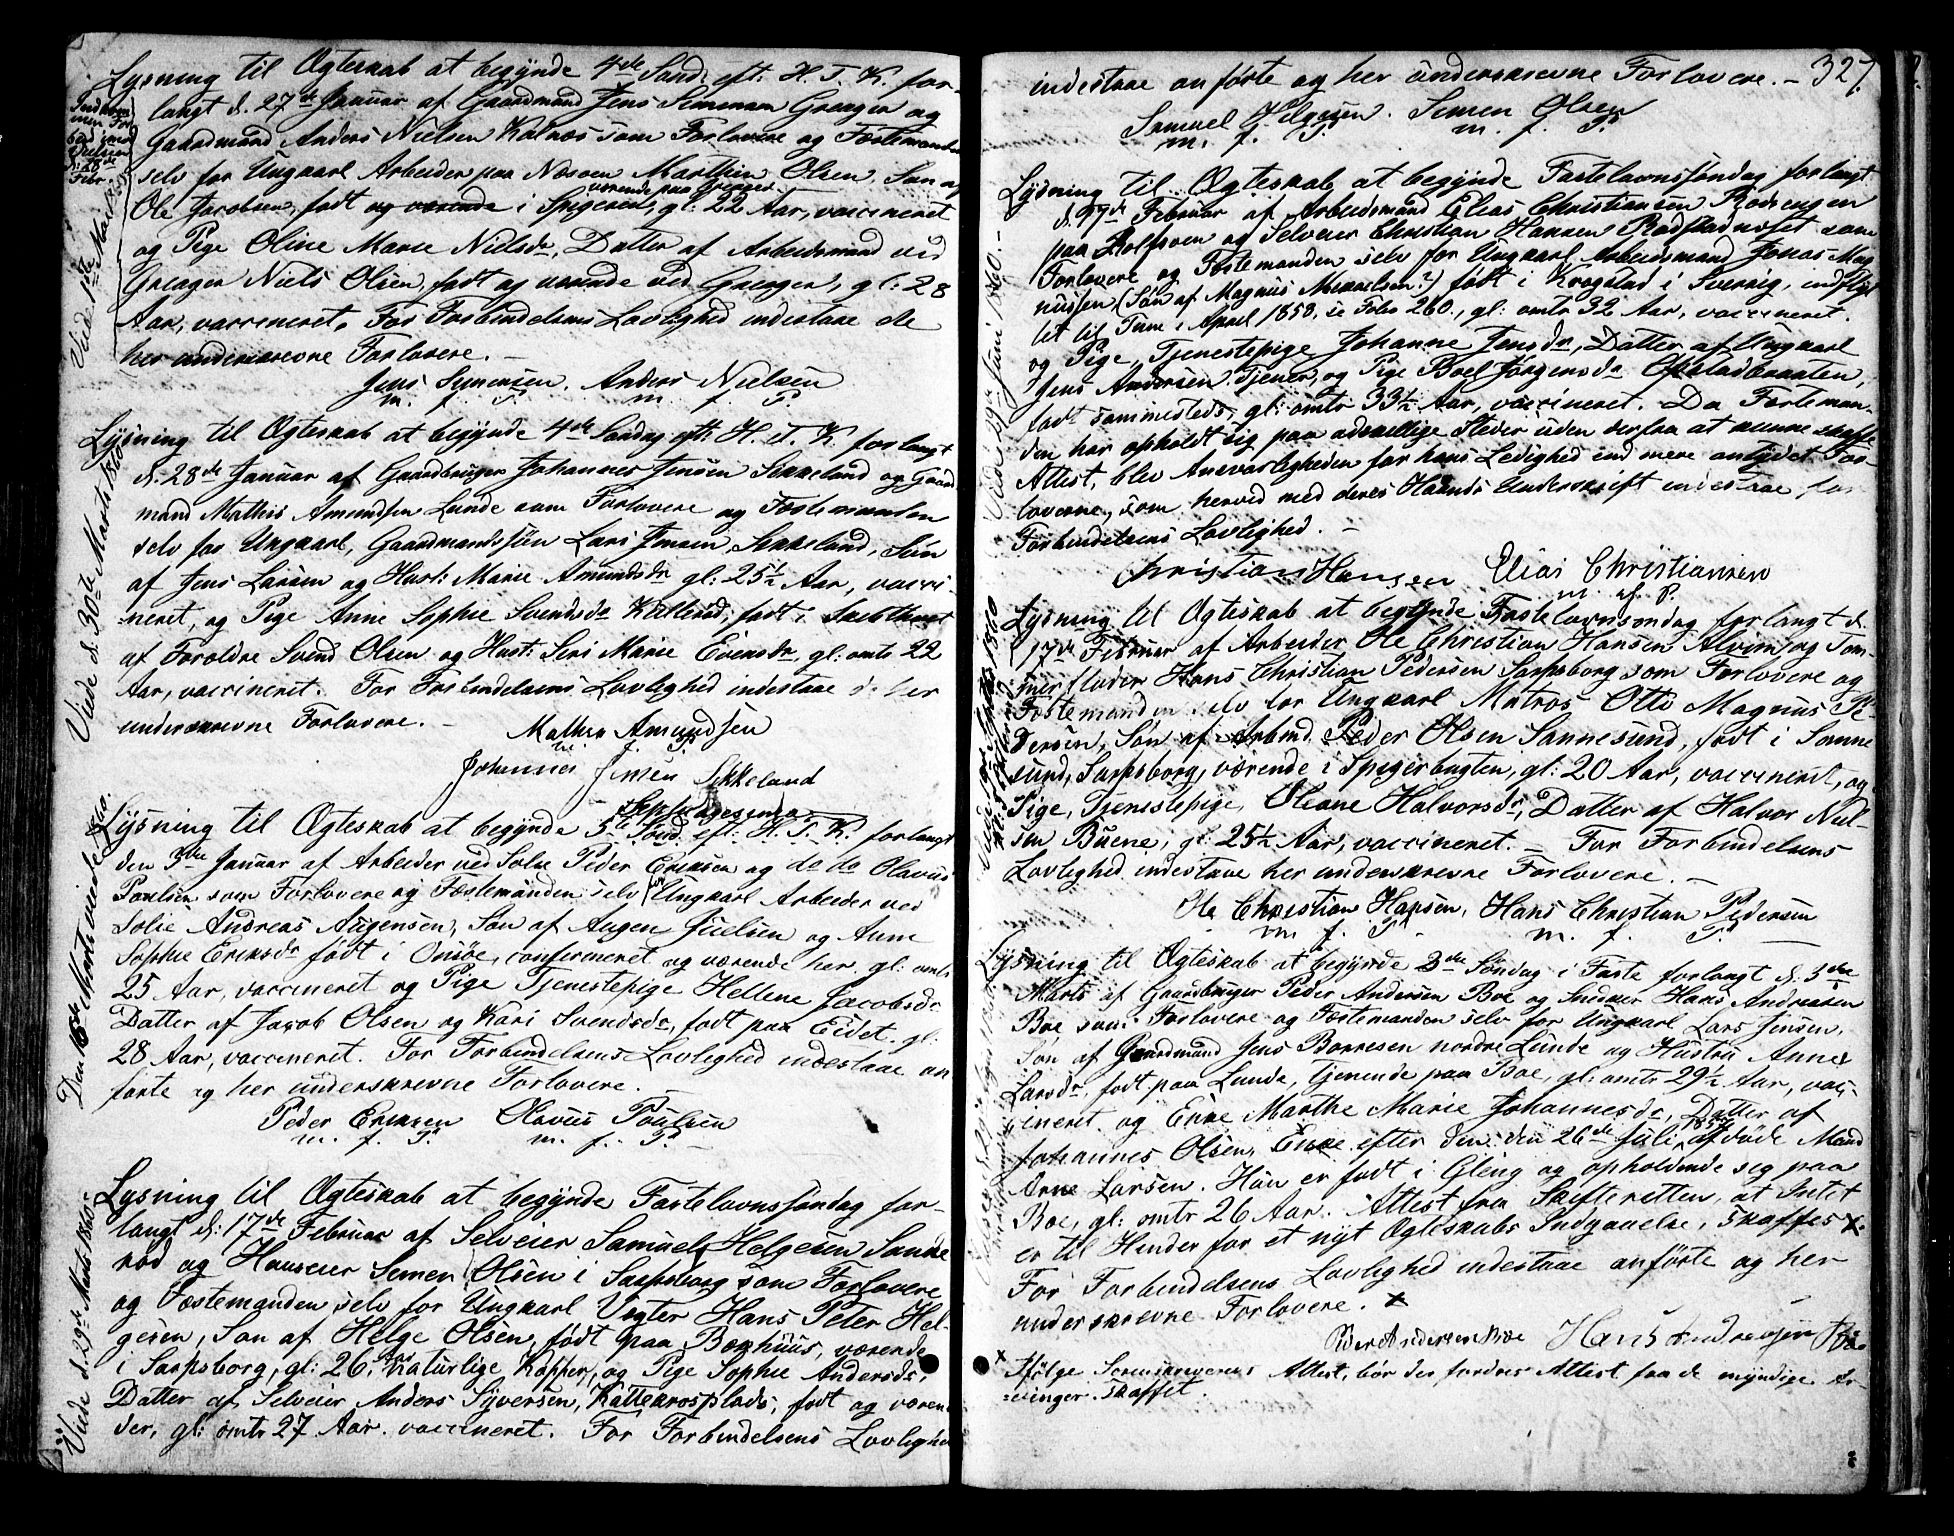 Lysning til Ægteskab at begynde 4de Sønd. eft. H. T. K. for-
langt d. 27de Januar af Gaardmand Jens Simensen Greager og
Gaardmand Anders Nielsen Kalnæs som Forlovere og Fæstemanden
selv for Ungkarl Arbeider paa Næsøen Marthin Olsen, Søn af
værende paa Greager
Ole Jacobsen, født og værende i Spigeren, gl: 22 Aar, vaccineret
og Pige Oline Marie Nielsdr, Datter af Arbeidsmand ved
Greager Niels Olsen, født og værende ved Greager, gl: 28
Aar, vaccineret. For Forbindelsens Lovlighed indestaae de
her underskrevne Forlovere. –
Jens Symensen. Anders Nielsen
m. f. P. m. f. P.
Lysning til Ægteskab at begynde 4de Søndag eft. H. T. K. forlangt
d. 28de Januar af Gaardbruger Johannes Jensen Sekkelund og Gaard-
mand Mathis Amundsen Lunde som Forlovere og Fæstemanden
selv for Ungkarl, Gaardmandssøn Lars Jensen Sekkeland, Søn
af Jens Larsen og Hust: Marie Amundsdr gl: 25½ Aar, vacci-
neret, og Pige Anne Sophie Svendsdr født i
af Forældre Svend Olsen og Hust: Siri Marie Evensdr, gl: omtr 22
Aar, vaccineret. For Forbindelsens Lovlighed indestaae de her
underskrevne Forlovere. –
Mathis Amundsen
m. f. P.
Johannes Jensen Sekkeland
Septuagesima
Lysning til Ægteskab at begynde 5te Sønd. eft: H. T. K. forlangt
den 3die Januar af Arbeider ved Solie Peder Eriksen og do do Olavus
Poulsen som Forlovere og Fæstemanden selv for Ungkarl Arbeider ved
Solie Andreas Augensen, Søn af Augen Juelsen og Anne
Sophie Eriksdr født i Onsøe, confirmeret og værende her, gl: omtr
25 Aar, vaccineret og Pige Tjenestepige Hellene Jacobsdr
Datter af Jacob Olsen og Kari Svendsdr, født paa Eidet, gl:
28 Aar, vaccineret. For Forbindelsens Lovlighed indestaae an-
førte og her underskrevne Forlovere. –
Peder Eriksen Olavus Poulsen
m. f. P. m. f. P.
Lysning til Ægteskab at begynde Fastelavnssøndag for-
langt d: 17de Februar af Selveier Samuel Helgesen Sande-
rød og Huuseier Semen Olsen i Sarpsborg som Forlovere
og Fæstemanden selv for Ungkarl Vægter Hans Peter Hel-
gesen, Søn af Helge Olsen, født paa Borhuus, værende
i Sarpsborg, gl: 26, naturlige Kopper, og Pige Sophie Andersdr,
Datter af Selveier Anders Syversen, Kattekrosplads, født og væren-
der, gl: omtr 27 Aar. vaccineret. For Forbindelsens Lovlighed
Viede 1ste Marts 1860
Viede d. 30te Marts 1860
Den 18de Marts viede 1860.
Viede d. 29de Marts 1860.
327.
indestaae anførte og her underskrevne Forlovere. –
Samuel Helgesen. Semen Olsen
m. f. P. m. f. P.
Lysning til Ægteskab at begynde Fastelavnssøndag forlangt
d. 17de Februar af Arbeidsmand Elias Christiansen Rødsengen
paa Rolfsøen og Selveier Christian Hansen Rødsfødnesset som
Forlovere og Fæstemanden selv for Ungkarl Arbeidsmand Jonas Mag-
nussen (Søn af Magnus Mikkelsen?) født i Krogstad i Sverrig, indflyt-
tet til Tune i April 1858, se Folio 260., gl: omtr 32 Aar, vaccineret.
og Pige, Tjenestepige Johanne Jensdr, Datter af Ungkarl
Jens Andersen Tjener, og Pige Boel Jørgensdr Ofstadbraaten,
født sammesteds, gl: omtr 33½ Aar, vaccineret. Da Fæsteman-
den har opholdt sig paa adskillige Steder uden derfra at kunne skaffe
Attest, blev Ansvarligheden for hans Ledighed end mere antydet For-
loverne, som herved med deres Haands Underskrift indestaae for
Forbindelsens Lovlighed. –
Christian Hansen Elias Christiansen
m. f. P.
Lysning til Ægteskab at begynde Fastelavnsøndag forlangt d.
17de Februar af Arbeider Ole Christian Hansen Alvim og Tøm-
merfløder Hans Christian Pedersen Sarpsborg som Forlovere og
Fæstemanden selv for Ungkarl Matros Otto Magnus Pe-
dersen, Søn af Arbmd. Peder Olsen Sannesund, født i Sanne-
sund, Sarpsborg, værende i Spigerbugten, gl: 20 Aar, vaccineret, og
Pige, Tjenestepige, Oleane Halvorsdr, Datter af Halvor Niel-
sen Buene, gl: 25½ Aar, vaccineret. – For Forbindelsens
Lovlighed indestaae her underskrevne Forlovere. –
Ole Christian Hansen, Hans Christian Pedersen
m. f. P. m. f. P.
Lysning til Ægteskab at begynde 2den Søndag i Faste forlangt d. 3die
Marts af Gaardbruger Peder Andersen Boe og Snedker Hans Andreasen
Boe som Forlovere og Fæstemanden selv for Ungkarl Lars Jensen,
Søn af Gaardmand Jens Borresen nordre Lunde og Hustru Anne
Larsdr, født paa Lunde, tjenende paa Boe, gl: omtr 29½ Aar, vacci-
neret og Enke Marthe Marie Johannesdr, Datter af
Johannes Olsen, Enke efter den den 26de Juli afdøde Mand
Arne Larsen. Hun er født i Gleng og opholdende seg paa
Boe, gl: omtr 26 Aar. Attest fra Skifteretten, at Intet
er til Hinder for et nyt Ægteskabs Indgaaelse, skaffes x.
For Forbindelsens Lovlighed indestaae anførte og her
underskrevne Forlovere. x
Peder Andersen Boe Hans Andreasen Bøe
x Ifølge Sorenskriverens Attest, bør der fordres Attest fra de myndige Ar-
vinger. skaffet.